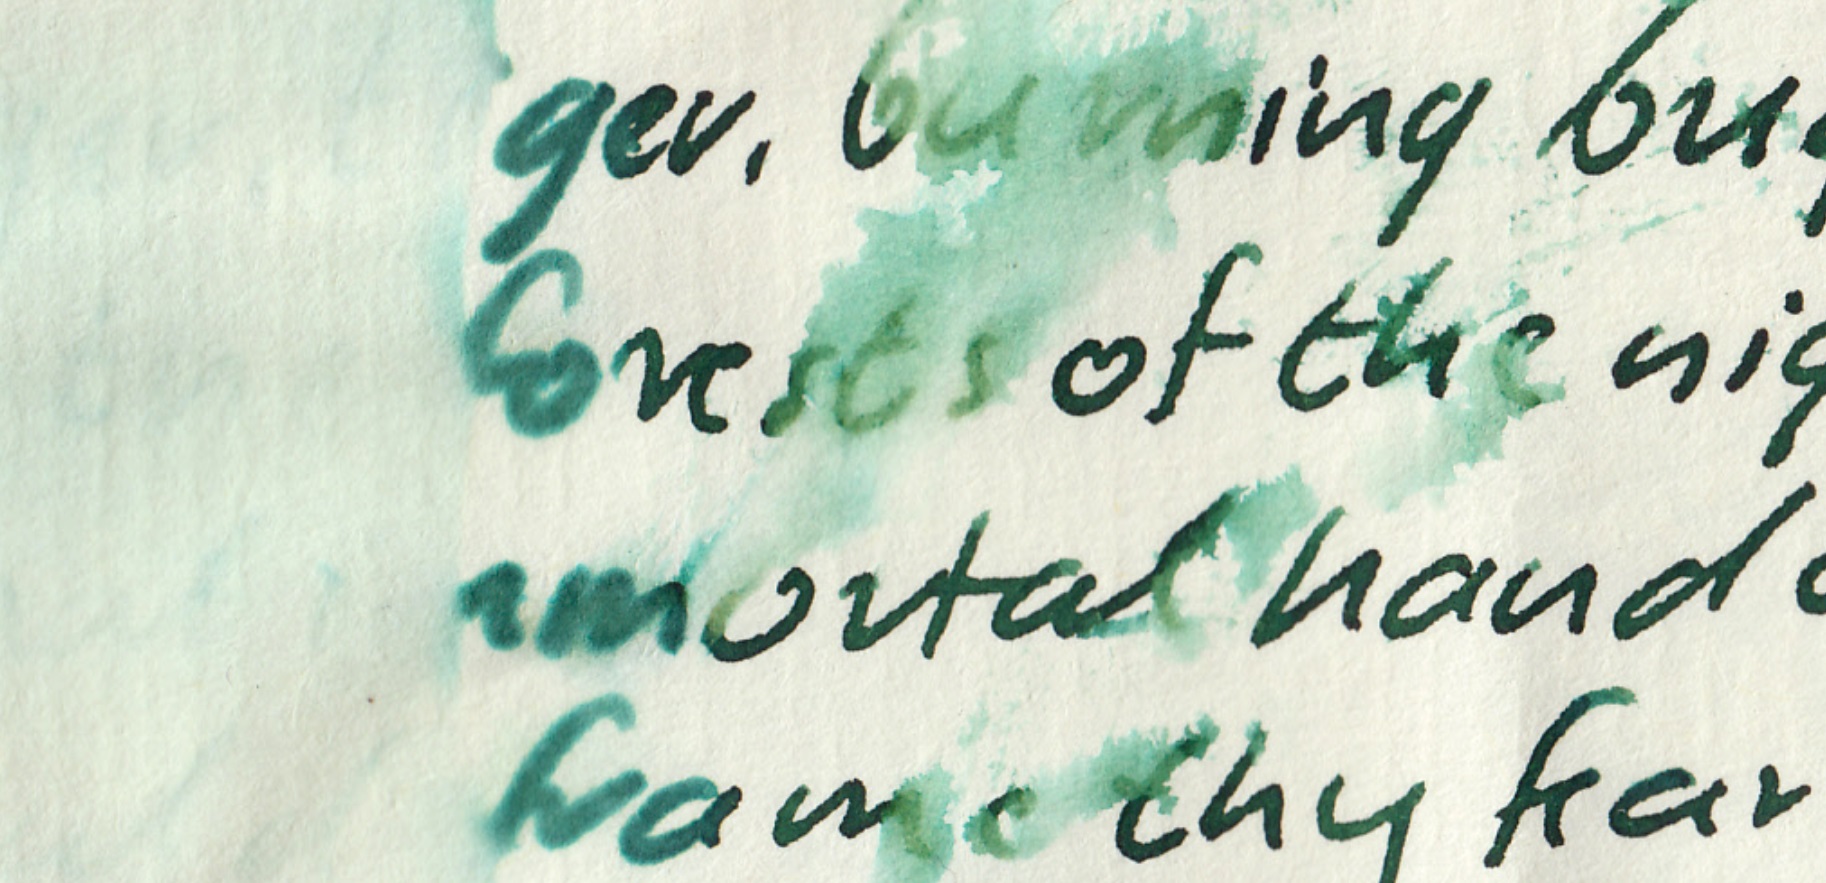 ger, burning brig
forests of the nig
mmortal hand o
frame thy fear